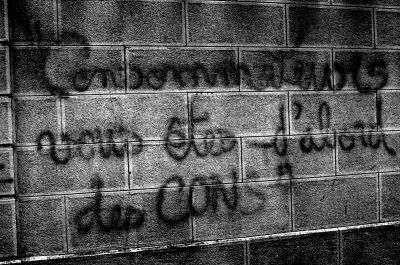 "Consommateurs
vous êtes d'abord
des CONS"